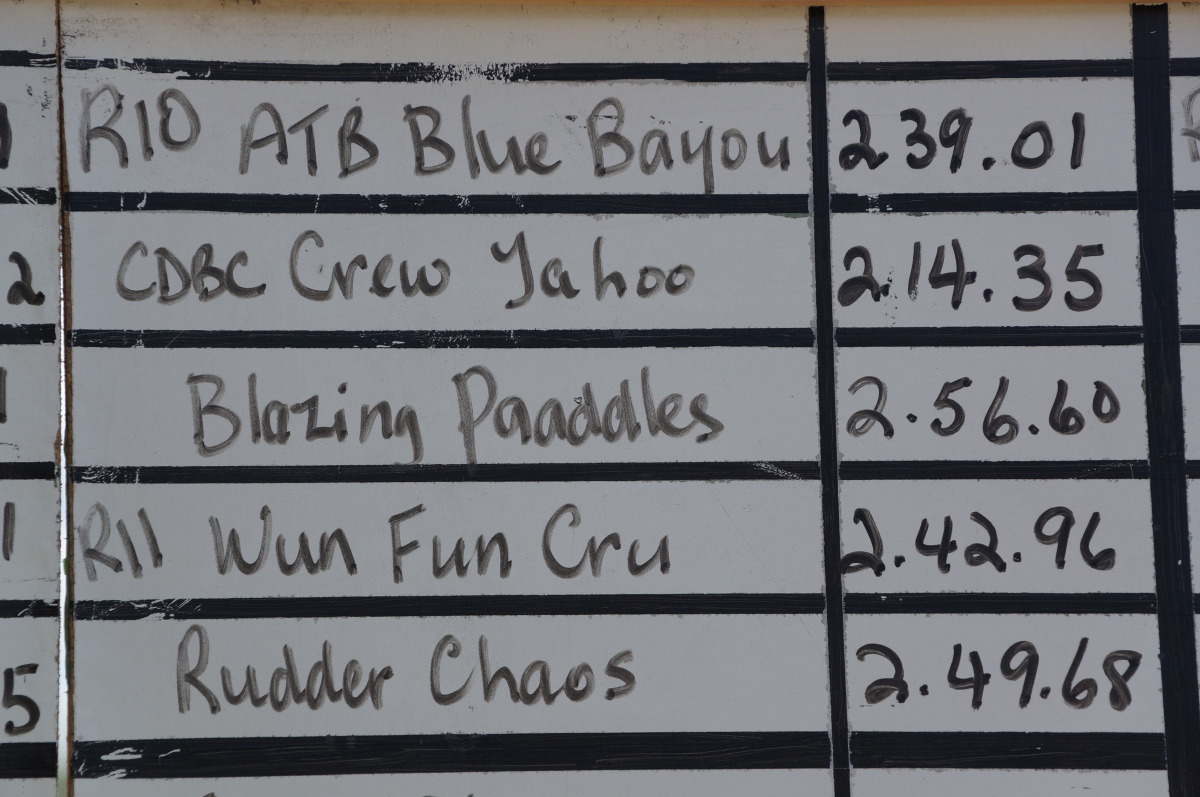 R10 ATB Blue Bayou 239.01
2 CDBC Crew Yahoo 2.14.35
1 Blazing Paaddles 2.56.60
1 R11 Wun Fun Cru 2.42.96
5 Rudder Chaos 2.49.68